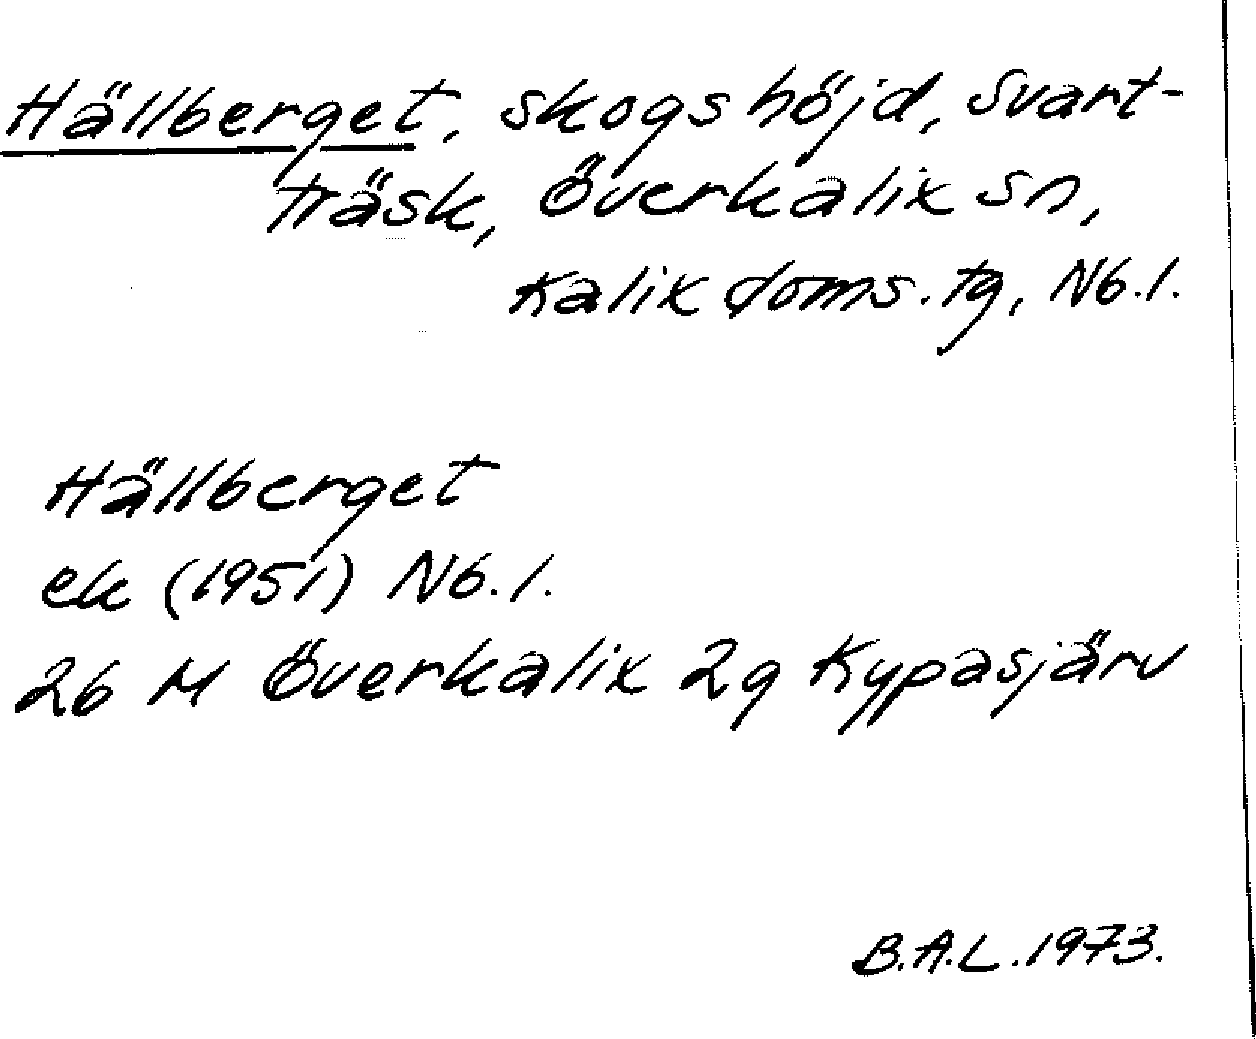 Hällberget, skogshöjd, Svart-
träsk, Överkalix sn,
Kalix doms. tg, Nb. l.
Hällberget
ek (1951) Nb. l.
26 M Överkalix 2g Kypasjärv
B.A.L. 1973.